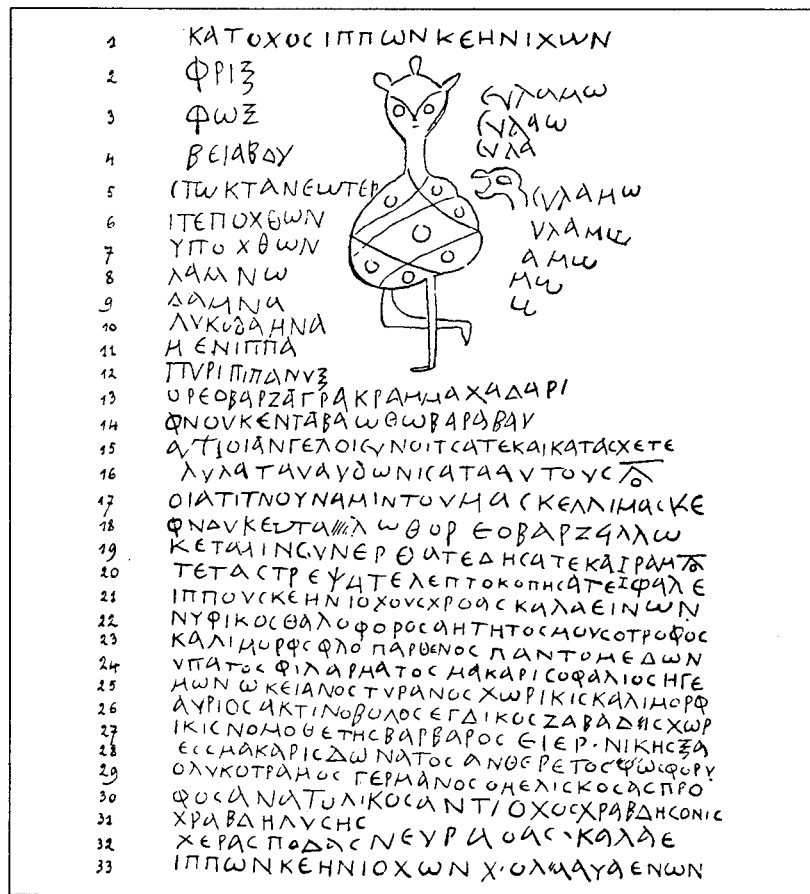 1 ΚΑΤΟΧΟϹΙΠΠΩΝΚΕΗΝΙΧΩΝ
2 ΦΡΙΞ
ΕΥΛΑΜΩ
3 ΦΩΞ
ΕΥΛΑΩ
ΕΥΛΑ
4 ΒΕΙΑΒΔΥ
5 ΙΠΩΚΤΑΝΕΩΤΕΡ
ΕΥΛΑΜΩ
6 ΙΤΕΠΟΧΘΩΝ
ΥΛΑΜΩ
7 ΥΠΟΧΘΩΝ
ΑΜΩ
8 ΛΑΜΝΩ
ΜΩ
9 ΔΑΜΝΑ
Ω
10 ΛΥΚΟΔΑΜΝΑ
11 ΜΕΝΙΠΠΑ
12 ΠΥΡΙΠΙΠΑΝΥΞ
13 ΟΡΕΟΒΑΡΖΑΓΡΑΚΡΑΜΜΑΧΑΔΑΡΙ
14 ΦΝΟΥΚΕΝΤΑΒΑΩΘΩΒΑΡΑΒΑΥ
15 ΑΓΙΟΙΑΝΓΕΛΟΙϹΥΝΟΙΤϹΑΤΕΚΑΙΚΑΤΑϹΧΕΤΕ
16 ΛΥΛΑΤΑΝΑΥΔΩΝΙϹΑΤΑΑΥΤΟΥϹ
17 ΟΙΑΤΙΤΝΟΥΝΑΜΙΝΤΟΥΜΑϹΚΕΛΛΙΜΑϹΚΕ
18 ΦΝΟΥΚΕΝΤΑ ΛΩΘΟΡΕΟΒΑΡΖΑΛΛΩ
19 ΚΕΤΑΛΙΝϹΥΝΕΡΘΑΤΕΔΗϹΑΤΕΚΑΙΡΑΜ
20 ΤΕΤΑϹΤΡΕΨΑΤΕΛΕΠΤΟΚΟΠΗϹΑΤΕΙΦΑΛΕ
21 ΙΠΠΟΥϹΚΕΗΝΙΟΧΟΥϹΧΡΟΑϹΚΑΛΑΕΙΝΩΝ
22 ΝΥΦΙΚΟϹΘΑΛΟΦΟΡΟϹΑΗΤΗΤΟϹΜΟΥϹΟΤΡΟΦΟϹ
23 ΚΑΛΙΜΟΡΦϹΦΛΟΠΑΡΘΕΝΟϹΠΑΝΤΟΜΕΔΩΝ
24 ΥΠΑΤΟϹΦΙΛΑΡΜΑΤΟϹΜΑΚΑΡΙϹΟΦΑΛΙΟϹΗΓΕ
25 ΜΩΝΩΚΕΙΑΝΟϹΤΥΡΑΝΟϹΧΩΡΙΚΙϹΚΑΛΙΜΟΡΦ
26 ΑΥΡΙΟϹΑΚΤΙΝΟΒΟΛΟϹΕΓΔΙΚΟϹΖΑΒΑΔΗϹΧΩΡ
27 ΙΚΙϹΝΟΜΟΘΕΤΗϹΒΑΡΒΑΡΟϹΕΙΕΡ·ΝΙΚΗϹΞΑ
28 ΕϹϹΜΑΚΑΡΙϹΔΩΝΑΤΟϹΑΝΘΕΡΕΤΟϹΦΩϹΦΟΡΥ
29 ΟΛΥΚΟΤΡΑΜΟϹΓΕΡΜΑΝΟϹΟΜΕΛΙϹΚΟϹΑϹΠΡΟ
30 ΦΟϹΑΝΑΤΟΛΙΚΟϹΑΝΤΙΟΧΟϹΧΡΑΒΔΗϹΟΝΙϹ
31 ΧΡΑΒΔΗΛΥϹΗϹ
32 ΧΕΡΑϹΠΟΔΑϹΝΕΥΡΑΟΑϹ·ΚΑΛΑΕ
33 ΙΠΠΩΝΚΕΗΝΙΟΧΩΝΧ·ΟΛΜΑΥΑΕΝΩΝ